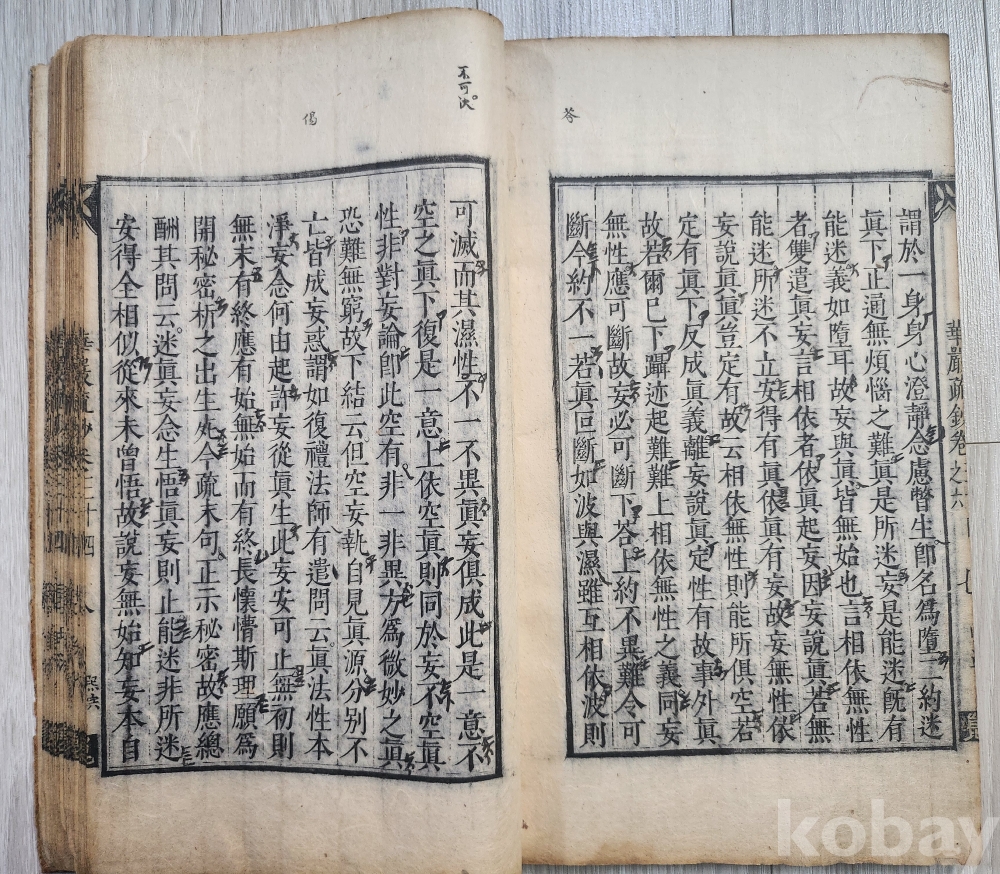 答
謂於一身身心澄靜念慮瞥生卽名爲墮二約迷
眞下正通無煩惱之難眞是所迷妄是能迷旣有
能迷義如墮耳故妄與眞皆無始也言相依無性
者雙遣眞妄言相依者依眞起妄因妄說眞若無
能迷所迷不立安得有眞依眞有妄故妄無性依
妄說眞眞豈定有故云相依無性則能所俱空若
定有眞下反成眞義離妄說眞定性有故事外眞
故若爾已下躡迹起難難上相依無性之義同妄
無性應可斷故妄必可斷下答上約不異難令可
斷今約不一若眞回斷如波與濕雖互相依波則
華嚴疏鈔卷之
七
不可決
偈
可滅而其濕性不一不異眞妄俱成此是一意不
空之眞下復是一意上依空眞則同於妄不空眞
性非對妄論卽此空有非一非異方爲微妙之眞
恐難無窮故下結云但空妄執自見眞源分別不
亡皆成妄惑謂如復禮法師有遣問云眞法性本
淨妄念何由起許妄從眞生此妄安可止無初則
無末有終應有始無始而有終長懷懵斯理願爲
開秘密析之出生死今疏末句正示秘密故應總
酬其問云迷眞妄念生悟眞妄則止能迷非所迷
安得全相似從來未曾悟故說妄無始知妄本自
華嚴疏鈔卷三十四
八
kobay